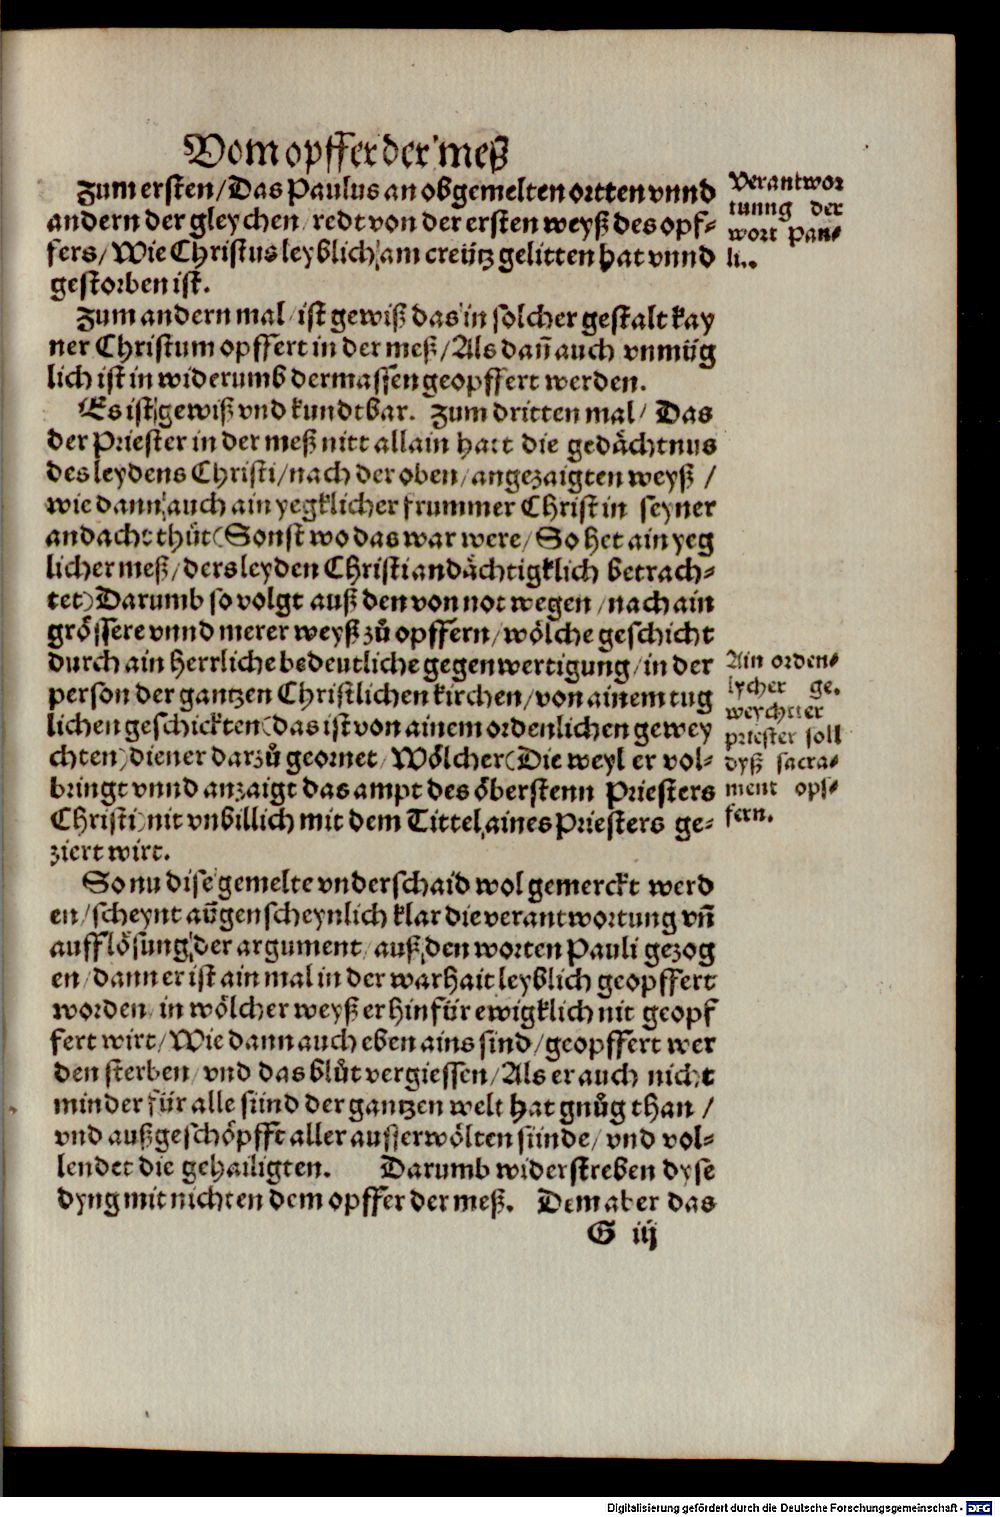 Vom opffer der meß
Zum ersten/ Das Paulus an obgemelten ortten vnnd
andern der gleychen/ redt von der ersten weyß des opf-
fers/ Wie Christus leyblich/ am creütz gelitten hat vnnd
gestorben ist.
Zum andern mal/ ist gewiß das in solcher gestalt kay
ner Christum opffert in der meß/ Als dañ auch vnmüg
lich ist in widerumb dermassen geopffert werden.
Es ist gewiß vnd kundtbar. Zum dritten mal/ Das
der Priester in der meß nitt allain hatt die gedächtnus
des leydens Christi/ nach der oben/ angezaigten weyß /
wie dann/ auch ain yegklicher frummer Christ in seyner
andacht thůt (Sonst wo das war were/ So het ain yeg
licher meß/ der s leyden Christi andächtigklich betrach-
tet) Darumb so volgt auß den von not wegen/ nach ain
grössere vnnd merer weyß zů opffern/ wölche geschicht
durch ain herrliche bedeutliche gegenwertigung/ in der
person der gantzen Christlichen kirchen/ von ainem tug
lichen geschickten (das ist von ainem ordenlichen gewey
chten) diener darzů geornet/ Wölcher (Die weyl er vol-
bringt vnnd anzaigt das ampt des öberstenn Priesters
Christi) nit vnbillich mit dem Tittel, aines Priesters ge-
ziert wirt.
So nu dise gemelte vnderschaid wol gemerckt werd
en/ scheynt augenscheynlich klar die verantwortung vñ
aufflösung, der argument/ auß, den worten Pauli gezog
en/ dann er ist ain mal in der warhait leyblich geopffert
worden/ in wölcher weyß er hinfür ewigklich nit geopf
fert wirt/ Wie dann auch eben ains sind/ geopffert wer
den sterben/ vnd das blůt vergiessen/ Als er auch nicht
minder für alle sünd der gantzen welt hat gnůg than /
vnd außgeschöpfft aller ausserwölten sünde/ vnd vol-
lendet die gehailigten. Darumb widerstreben dyse
dyng mit nichten dem opffer der meß. Dem aber das
G iij
Verantwor
tunng der
wort Pau-
li..
Ain orden-
lycher ge.
weychter
priester soll
dyß sacra-
ment opf-
fern.
Digitalisierung gefördert durch die Deutsche Forschungsgemeinschaft - DFG